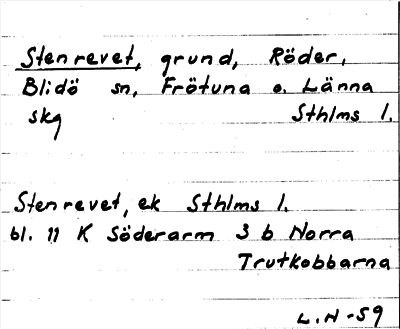 Stenrevet, grund, Röder,
Blidö sn, Frötuna o. Länna
skg Sthlms l.
Stenrevet, ek Sthlms l.
bl. 11 K Söderarm 3 b Norra
Trutkobbarna
L.N-59